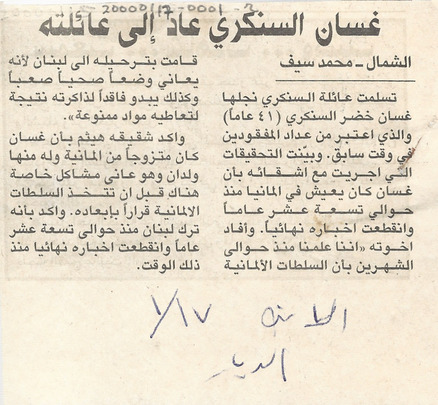 20000117-0001-2
غسان السنكري عاد إلى عائلته
الشمال ــ محمد سيف
تسلمت عائلة السنكري نجلها
غسان خضر السنكري (٤١ عاماً)
والذي اعتبر من عداد المفقودين
في وقت سابق. وبيّنت التحقيقات
التي اجريت مع اشقائه بأن
غسان كان يعيش في المانيا منذ
حوالي تسعة عشر عاماً
وانقطعت اخباره نهائياً. وأفاد
اخوته «اننا علمنا منذ حوالى
الشهرين بأن السلطات الألمانية
قامت بترحيله الى لبنان لأنه
يعاني وضعاً صحياً صعباً
وكذلك يبدو فاقداً لذاكرته نتيجة
لتعاطيه مواد ممنوعة».
واكد شقيقه هيثم بأن غسان
كان متزوجاً من المانية وله منها
ولدان وهو عانى مشاكل خاصة
هناك قبل ان تتخذ السلطات
الالمانية قراراً بإبعاده. واكد بأنه
ترك لبنان منذ حوالى تسعة عشر
عاماً وانقطعت اخباره نهائيا منذ
ذلك الوقت.
١/١٧
الديار